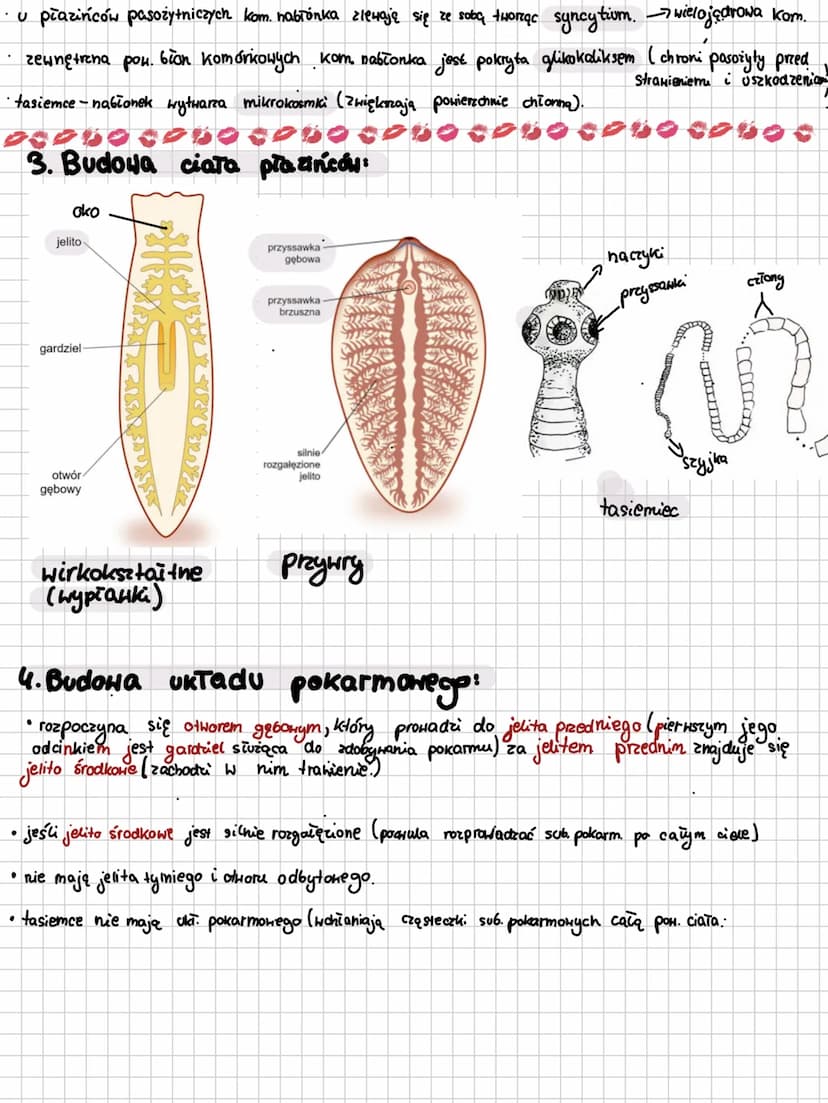 • u płazińców pasożytniczych kom. nabłonka zlewają się ze sobą tworząc syncytium. → wielojądrowa kom.
• zewnętrzna pow. błon komórkowych kom. nabłonka jest pokryta glikokaliksem (chroni pasożyty przed
strawieniem i uszkodzeniam
• tasiemce – nabłonek wytwarza mikrokosmki (zwiększają powierzchnie chłonną).
3. Budowa ciała płazińców:
oko
jelito
gardziel
otwór
gębowy
wirkokształtne
(wypławki)
przyssawka
gębowa
przyssawka
brzuszna
silnie
rozgałęzione
jelito
przywry
haczyki
przyssawki
człony
szyjka
tasiemiec
4. Budowa układu pokarmowego:
• rozpoczyna się otworem gębowym, który prowadzi do jelita przedniego (pierwszym jego
odcinkiem jest gardziel służąca do zdobywania pokarmu) za jelitem przednim znajduje się
jelito środkowe (zachodzi w nim trawienie.)
• jeśli jelito środkowe jest silnie rozgałęzione (pozwala rozprowadzać sub. pokarm. po całym ciele)
• nie mają jelita tylniego i otworu odbytowego.
• tasiemce nie mają ukł. pokarmowego (wchłaniają cząsteczki sub. pokarmowych całą pow. ciała.